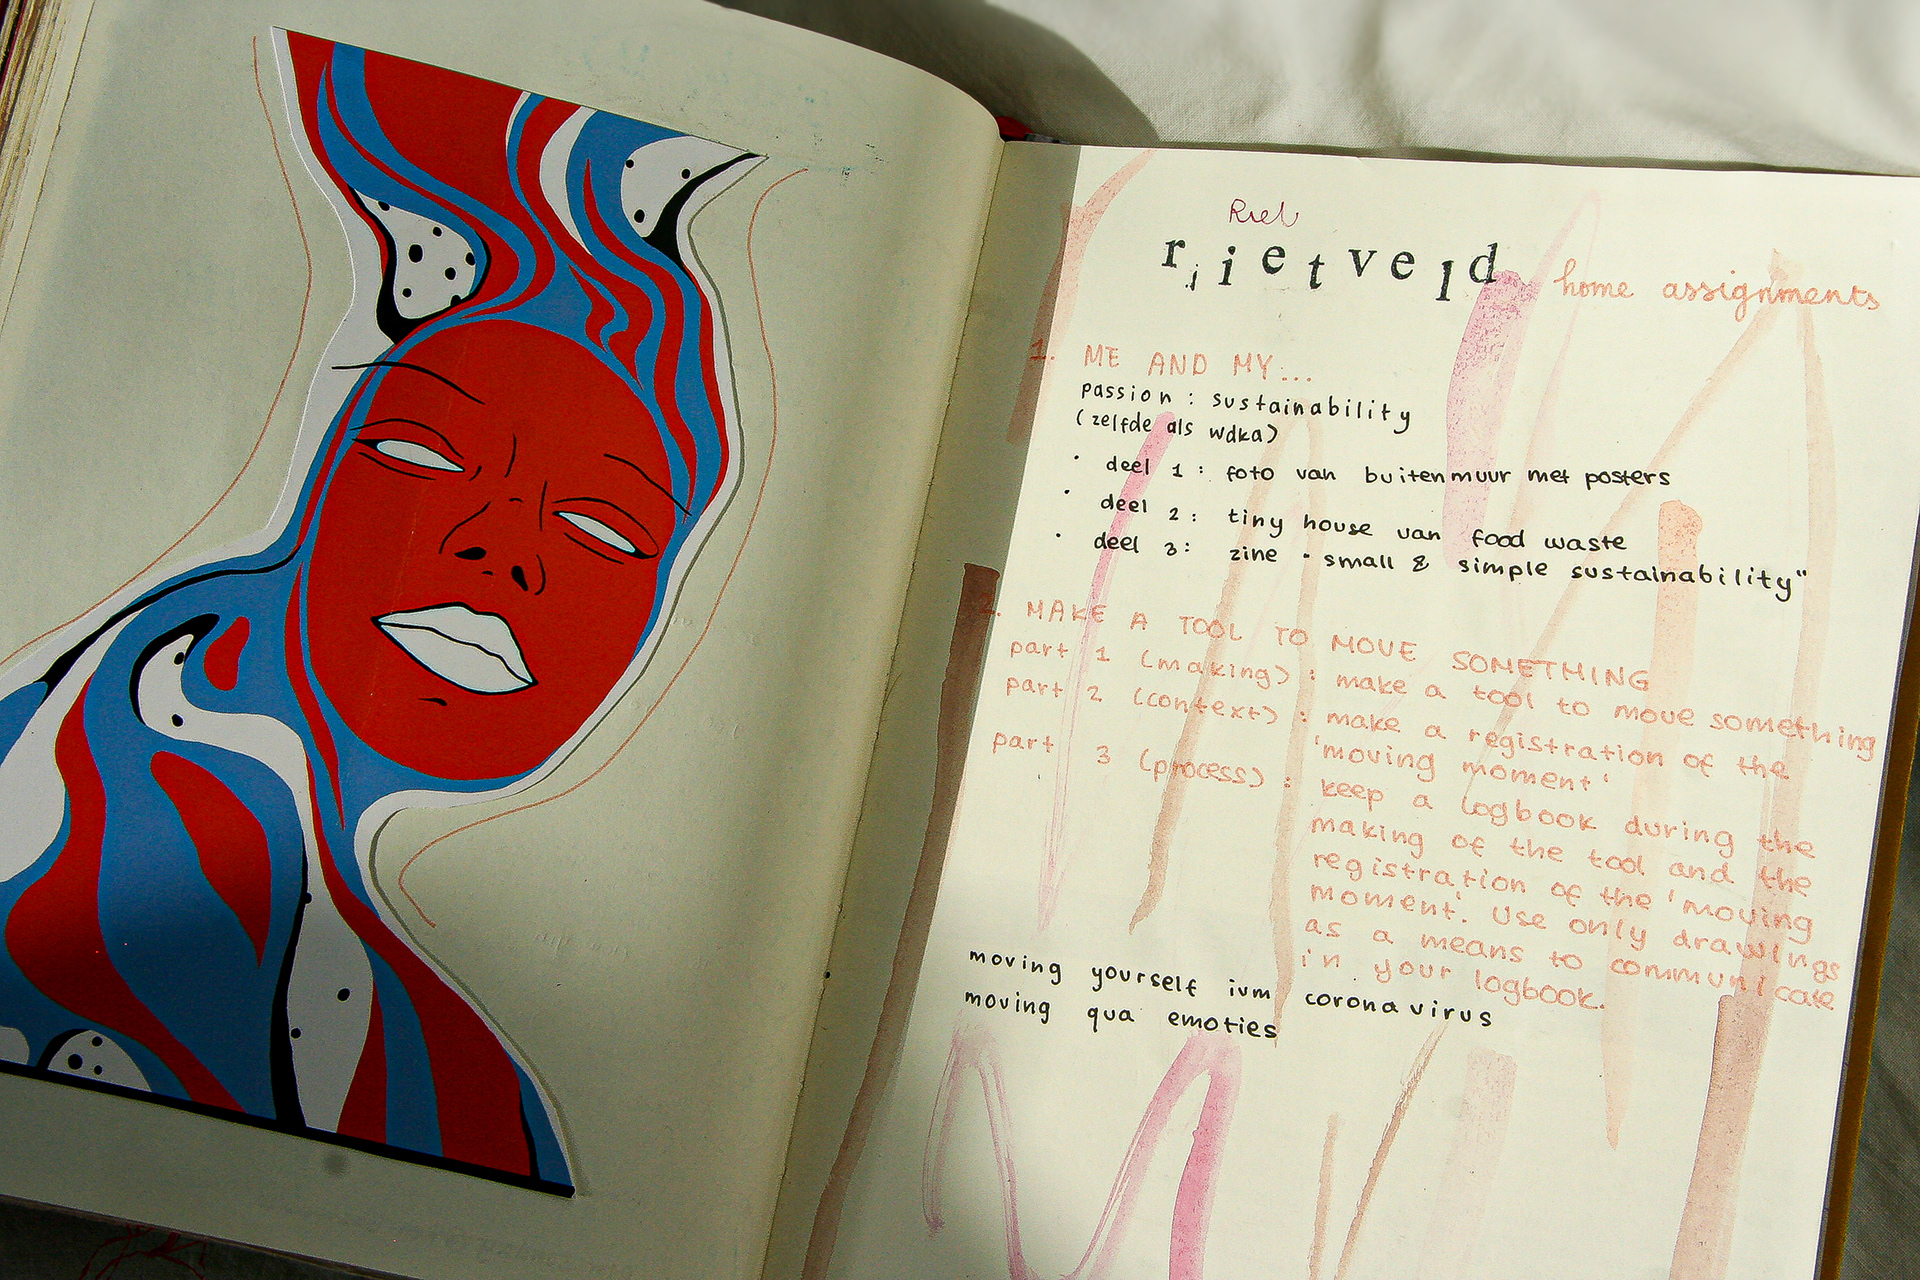 Riet
rietveld home assignments
1. ME AND MY...
passion : sustainability
(zelfde als wdka)
• deel 1 : foto van buitenmuur met posters
• deel 2 : tiny house van food waste
• deel 3 : zine "small & simple sustainability"
2. MAKE A TOOL TO MOVE SOMETHING
part 1 (making) : make a tool to move something
part 2 (context) : make a registration of the
'moving moment'
part 3 (process) : keep a logbook during the
making of the tool and the
registration of the 'moving
moment'. Use only drawings
as a means to communicate
in your logbook.
moving yourself ivm coronavirus
moving qua emoties